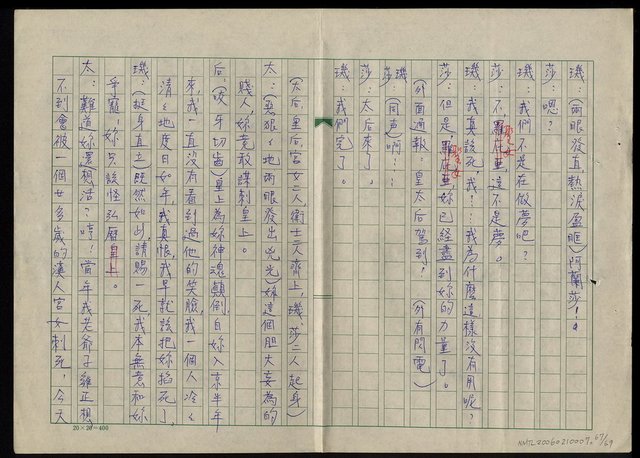 璣：(兩眼發直，熱淚盈眶)阿蘭莎！。
莎：嗯？
璣：我們不是在做夢吧？
莎：不，這不是夢。
璣：我真該死，我！…我為什麼這樣沒有用呢？
莎：但是，妳已經盡到妳的力量了。
(外面通報：皇太后駕到！　(外有閃電)
莎璣：(同声)啊！…
莎：太后來了。
璣：我們完了。
(太后皇后宮女二人衛士二人齊上，璣、莎二人起身)
太：(惡狠々地兩眼發出兇光)妳這個胆大妄為的
賤人，妳竟敢謀刺皇上。
后：(咬牙切齒)皇上為妳神魂顛倒，自妳入京半年
來，我一直沒有看到過他的笑臉，我一個人冷々
清々地度日如年，我真恨，我早就該把妳掐死了，
璣：(挺身直立)既然如此，請賜一死，我本無意和妳
爭寵，妳只該怪弘曆皇上。
太：難道妳還想活？哼！當年我老爺子雍正想
不到會被一個廿多歲的漢人宮女刺死，今天
20×20＝400
NMTL20060210007. 67/69